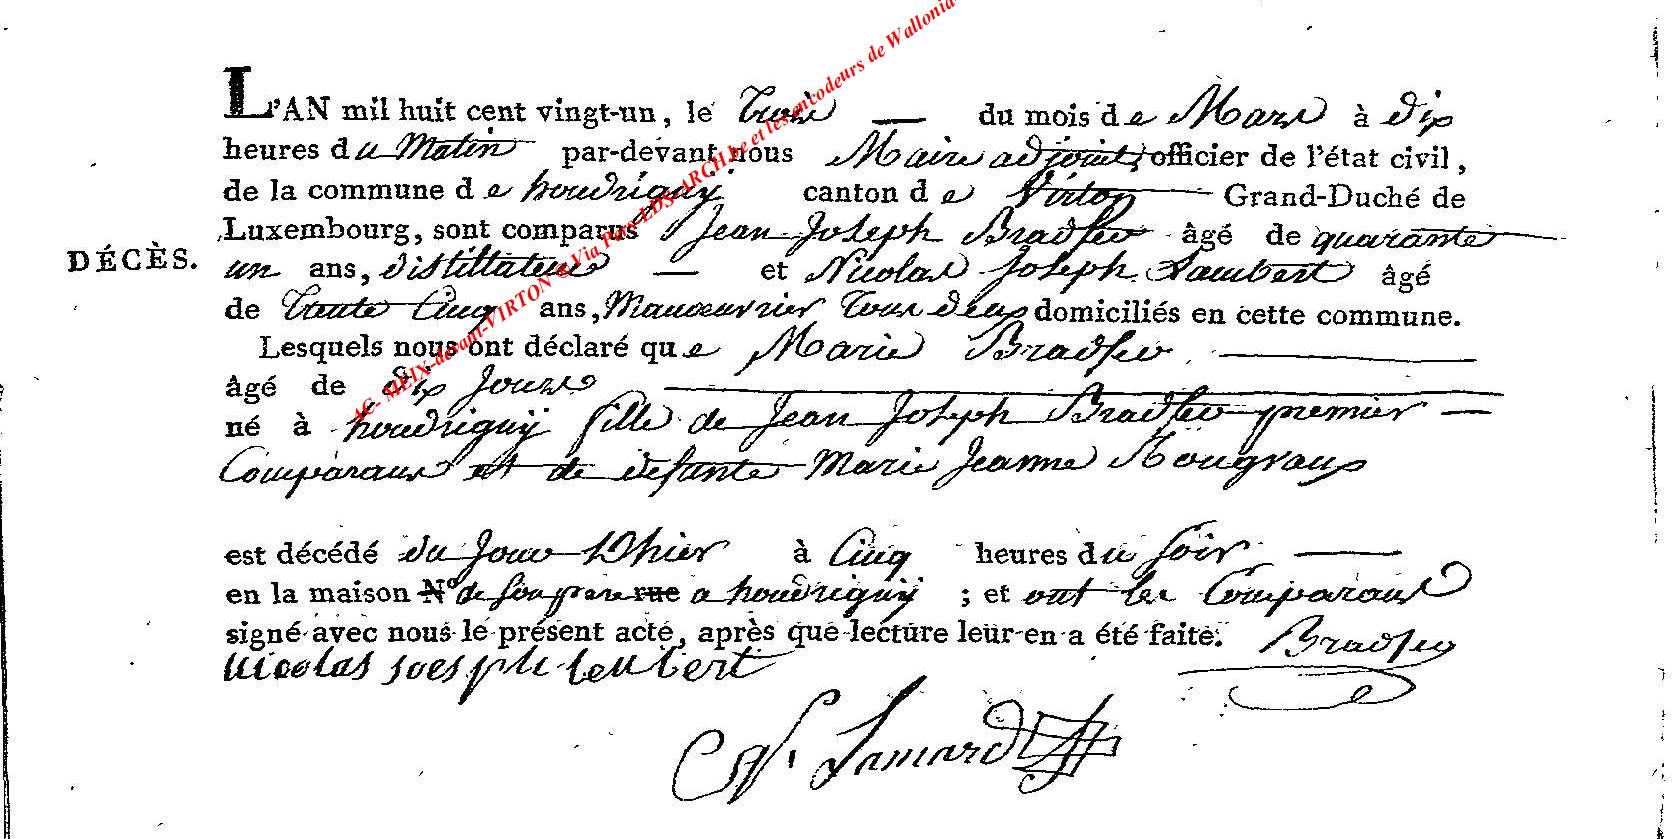 L'AN mil huit cent vingt-un, le Trois du mois de Mars à dix
heures du Matin par-devant nous Maire adjoint, officier de l'état civil,
de la commune de houdrigny canton de Virton Grand-Duché de
Luxembourg, sont comparus Jean Joseph Bradfer âgé de quarante
DÉCÈS. un ans, distillateur et Nicolas Joseph Lambert âgé
de Trente Cinq ans, Manœuvrier Tous deux domiciliés en cette commune.
Lesquels nous ont déclaré que Marie Bradfer
âgé de dix Jours
né à houdrigny fille de Jean Joseph Bradfer premier
Comparant et de defunte Marie Jeanne Rougraux
est décédé du Jour Dhier à Cinq heures du soir
en la maison N° de son pere rue a houdrigny ; et ont les Comparans
signé avec nous le présent acte, après que lecture leur en a été faite. Bradfer
nicolas joesph lenbert
Lamard
AC- MEIX-devant-VIRTON © Via Pays LDS-ARCH.be et les encodeurs de Wallonia